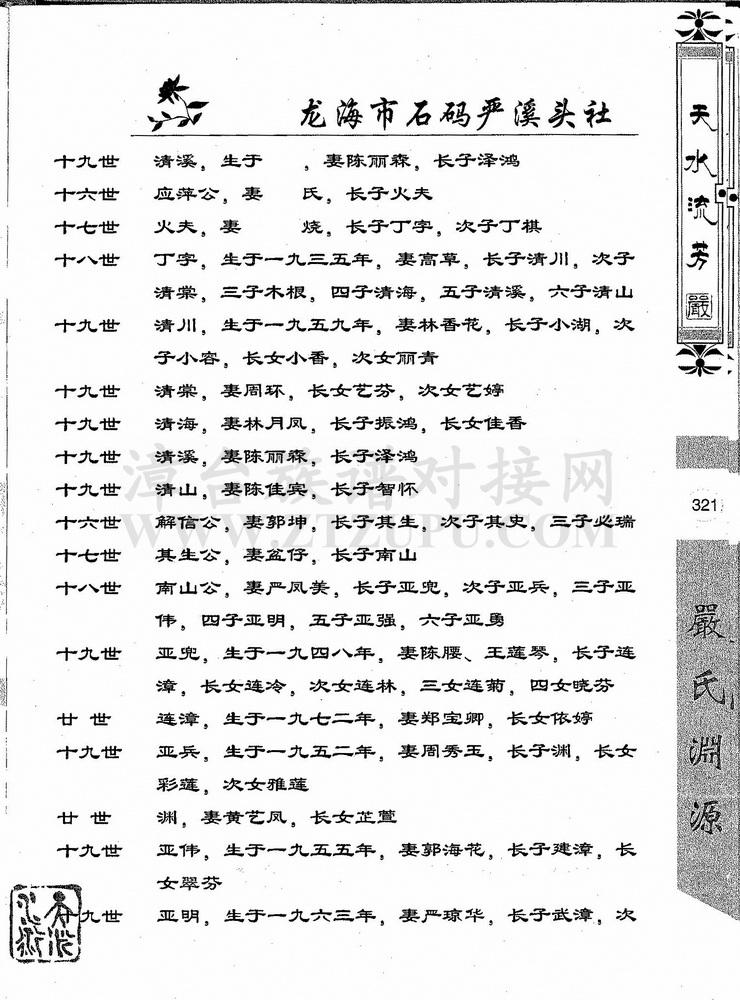 龙海市石码严溪头社
十九世 清溪，生于　　，妻陈丽森，长子泽鸿
十六世 应萍公，妻　　氏，长子火夫
十七世 火夫，妻　　烧，长子丁字，次子丁棋
十八世 丁字，生于一九三五年，妻高草，长子清川，次子
清棠，三子木根，四子清海，五子清溪，六子清山
十九世 清川，生于一九五九年，妻林香花，长子小湖，次
子小容，长女小香，次女丽青
十九世 清棠，妻周环，长女艺芬，次女艺婷
十九世 清海，妻林月凤，长子振鸿，长女佳香
十九世 清溪，妻陈丽森，长子泽鸿
十九世 清山，妻陈佳宾，长子智怀
十六世 解信公，妻郭坤，长子其生，次子其史，三子必瑞
十七世 其生公，妻盆仔，长子南山
十八世 南山公，妻严凤美，长子亚兜，次子亚兵，三子亚
伟，四子亚明，五子亚强，六子亚勇
十九世 亚兜，生于一九四八年，妻陈腰、王莲琴，长子连
漳，长女连冷，次女连林，三女连菊，四女晓芬
廿世 连漳，生于一九七二年，妻郑宝卿，长女依婷
十九世 亚兵，生于一九五二年，妻周秀玉，长子渊，长女
彩莲，次女雅莲
廿世 渊，妻黄艺凤，长女芷萱
十九世 亚伟，生于一九五五年，妻郭海花，长子建漳，长
女翠芬
九世 亚明，生于一九六三年，妻严琼华，长子武漳，次
天水流芳
嚴
321
嚴氏淵源
漳台族谱对接网
WWW.ZTZUPU.COM